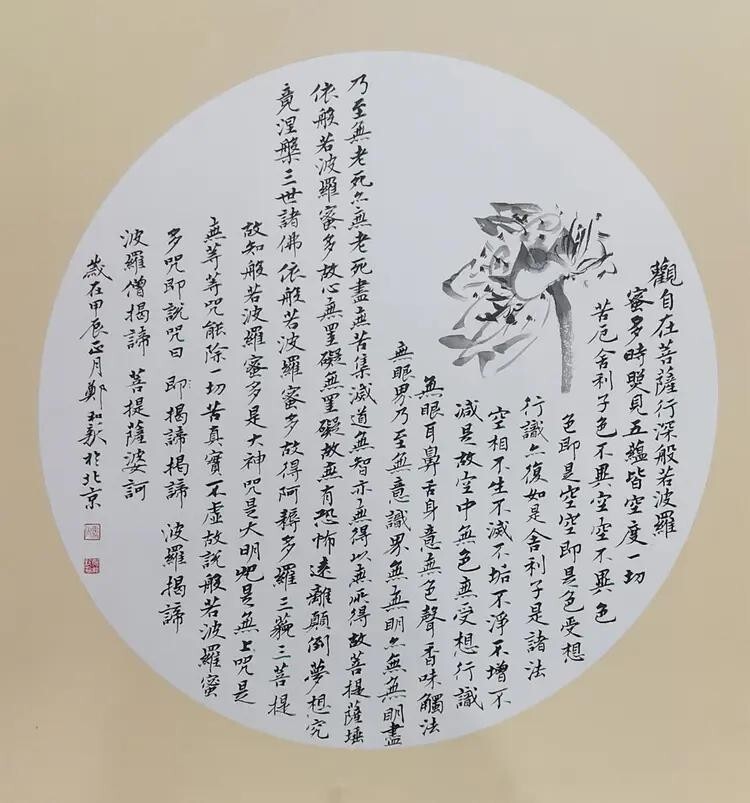 觀自在菩薩行深般若波羅
蜜多時照見五蘊皆空度一切
苦厄舍利子色不異空空不異色
色即是空空即是色受想
行識亦復如是舍利子是諸法
空相不生不滅不垢不淨不增不
減是故空中無色無受想行識
無眼耳鼻舌身意無色聲香味觸法
無眼界乃至無意識界無無明亦無無明盡
乃至無老死亦無老死盡無苦集滅道無智亦無得以無所得故菩提薩埵
依般若波羅蜜多故心無罣礙無罣礙故無有恐怖遠離顛倒夢想究
竟涅槃三世諸佛依般若波羅蜜多故得阿耨多羅三藐三菩提
故知般若波羅蜜多是大神咒是大明咒是無上咒是
無等等咒能除一切苦真實不虛故說般若波羅蜜
多咒即說咒曰 即揭諦揭諦 波羅揭諦
波羅僧揭諦 菩提薩婆訶
歲在甲辰正月鄭於北京